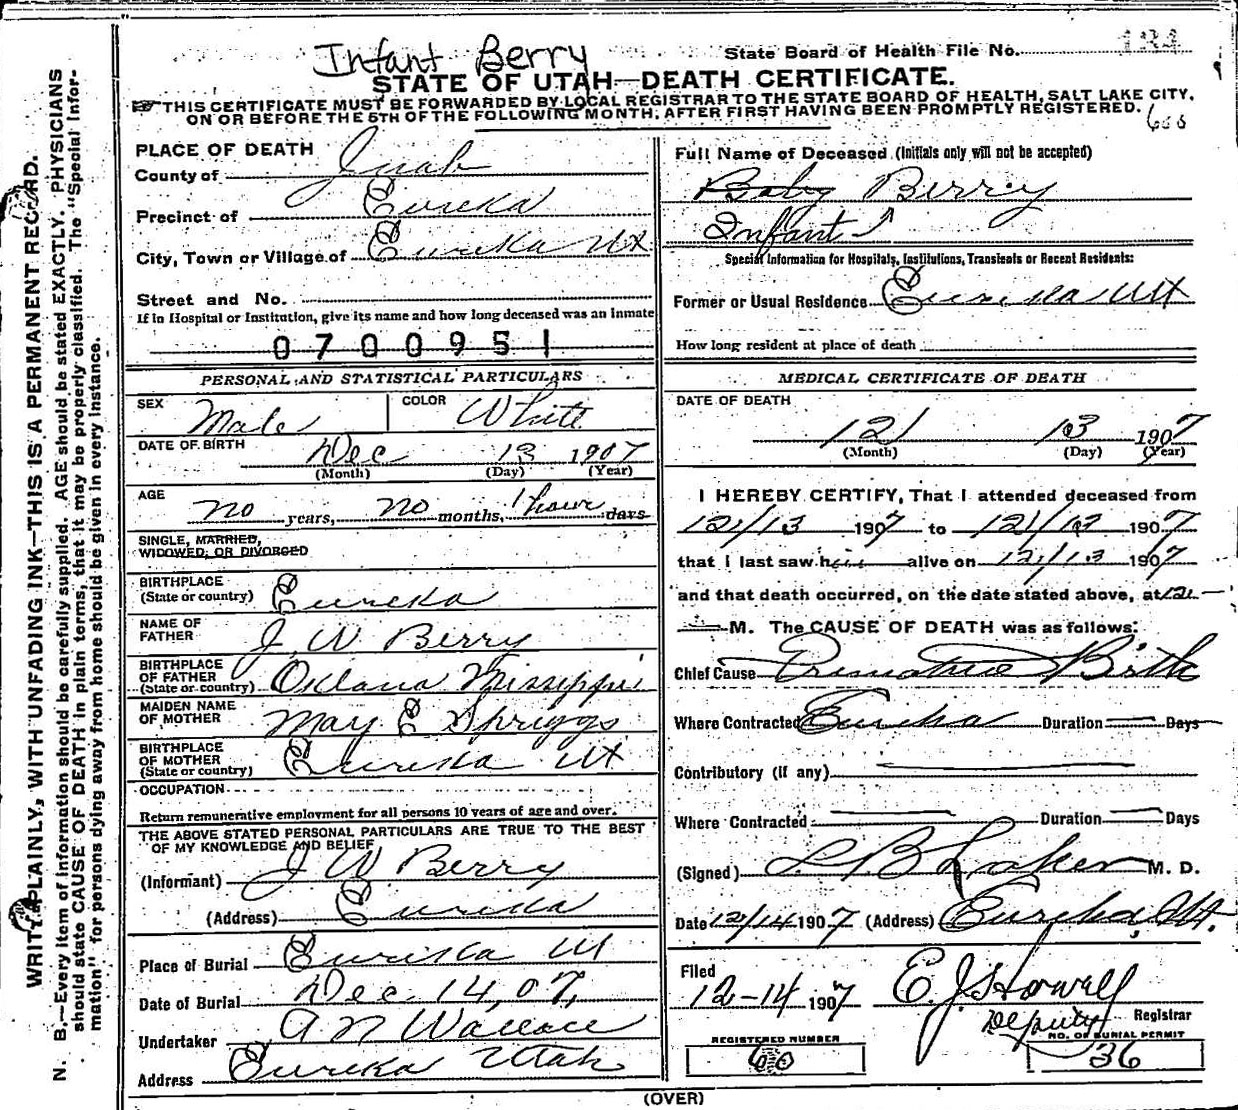 Infant Berry
State Board of Health File No. 134
STATE OF UTAH—DEATH CERTIFICATE.
THIS CERTIFICATE MUST BE FORWARDED BY LOCAL REGISTRAR TO THE STATE BOARD OF HEALTH, SALT LAKE CITY,
ON OR BEFORE THE 5TH OF THE FOLLOWING MONTH, AFTER FIRST HAVING BEEN PROMPTLY REGISTERED.
WRITE PLAINLY, WITH UNFADING INK—THIS IS A PERMANENT RECORD.
N. B.—Every item of information should be carefully supplied. AGE should be stated EXACTLY. PHYSICIANS
should state CAUSE OF DEATH in plain terms, that it may be properly classified. The "Special Infor-
mation" for persons dying away from home should be given in every instance.
PLACE OF DEATH
County of Juab
Precinct of Eureka
City, Town or Village of Eureka Ut
Street and No.
If in Hospital or Institution, give its name and how long deceased was an inmate
0700951
PERSONAL AND STATISTICAL PARTICULARS
SEX Male COLOR White
DATE OF BIRTH
Dec 13 1907
(Month) (Day) (Year)
AGE
no years, no months, 1 hour days
SINGLE, MARRIED,
WIDOWED, OR DIVORCED
BIRTHPLACE
(State or country) Eureka
NAME OF
FATHER J. W Berry
BIRTHPLACE
OF FATHER
(State or country) Oklana Missippi
MAIDEN NAME
OF MOTHER May E Spriggs
BIRTHPLACE
OF MOTHER
(State or country) Eureka Ut
OCCUPATION
Return remunerative employment for all persons 10 years of age and over.
THE ABOVE STATED PERSONAL PARTICULARS ARE TRUE TO THE BEST
OF MY KNOWLEDGE AND BELIEF
(Informant) J W. Berry
(Address) Eureka
Place of Burial Eureka Ut
Date of Burial Dec. 14, 07,
Undertaker A N Wallace
Address Eureka Utah
Full Name of Deceased (Initials only will not be accepted)
Baby Berry
Infant
Special Information for Hospitals, Institutions, Transients or Recent Residents:
Former or Usual Residence Eureka Ut
How long resident at place of death
MEDICAL CERTIFICATE OF DEATH
DATE OF DEATH
12 13 1907
(Month) (Day) (Year)
I HEREBY CERTIFY, That I attended deceased from
12/13 1907 to 12/13 1907
that I last saw him alive on 12/13 1907
and that death occurred, on the date stated above, at 12
M. The CAUSE OF DEATH was as follows:
Chief Cause Premature Birth
Where Contracted Eureka Duration Days
Contributory (if any)
Where Contracted Duration Days
(Signed) M. D.
Date 12/14 1907 (Address) Eureka, Ut.
Filed
12-14 1907 E. J. Howell
Deputy Registrar
REGISTERED NUMBER NO. OF BURIAL PERMIT
60 36
(OVER)